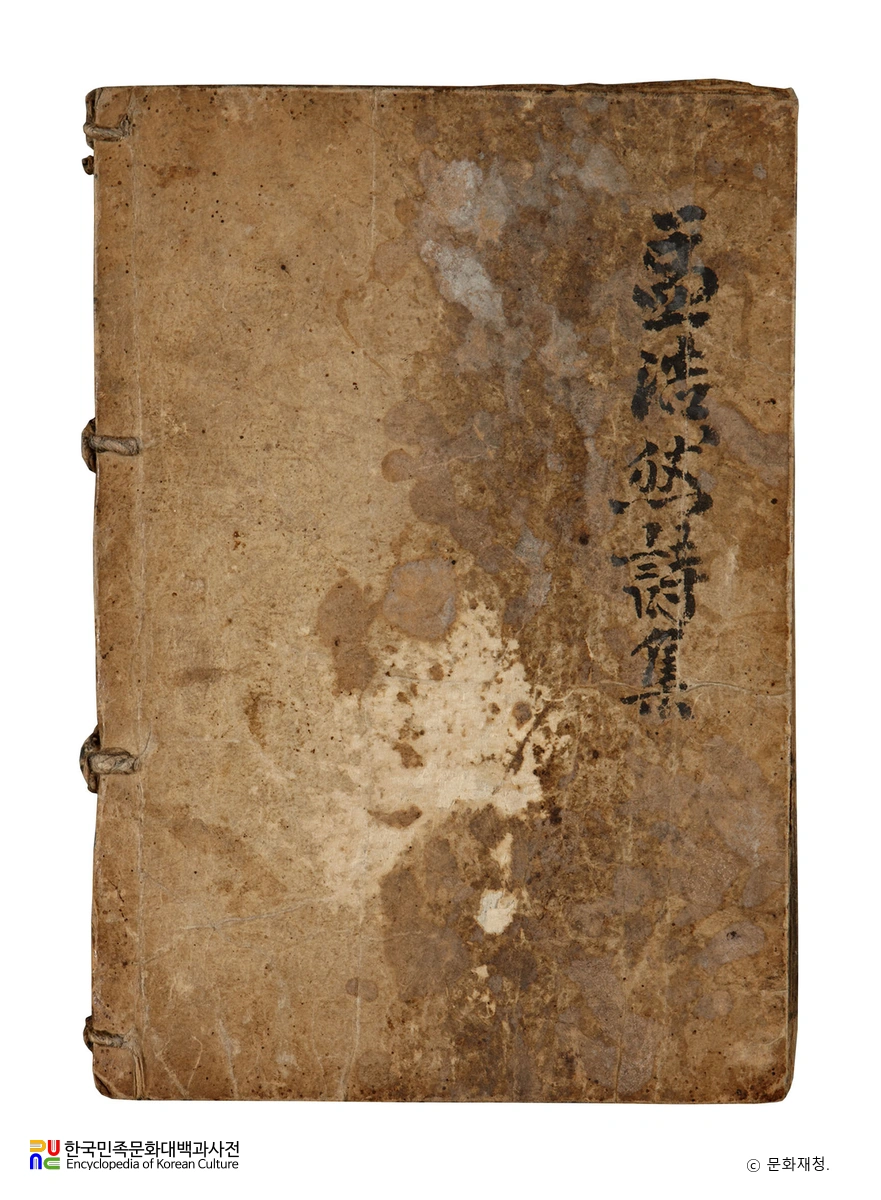 孟浩然詩集
한국민족문화대백과사전
Encyclopedia of Korean Culture
ⓒ 문화재청.